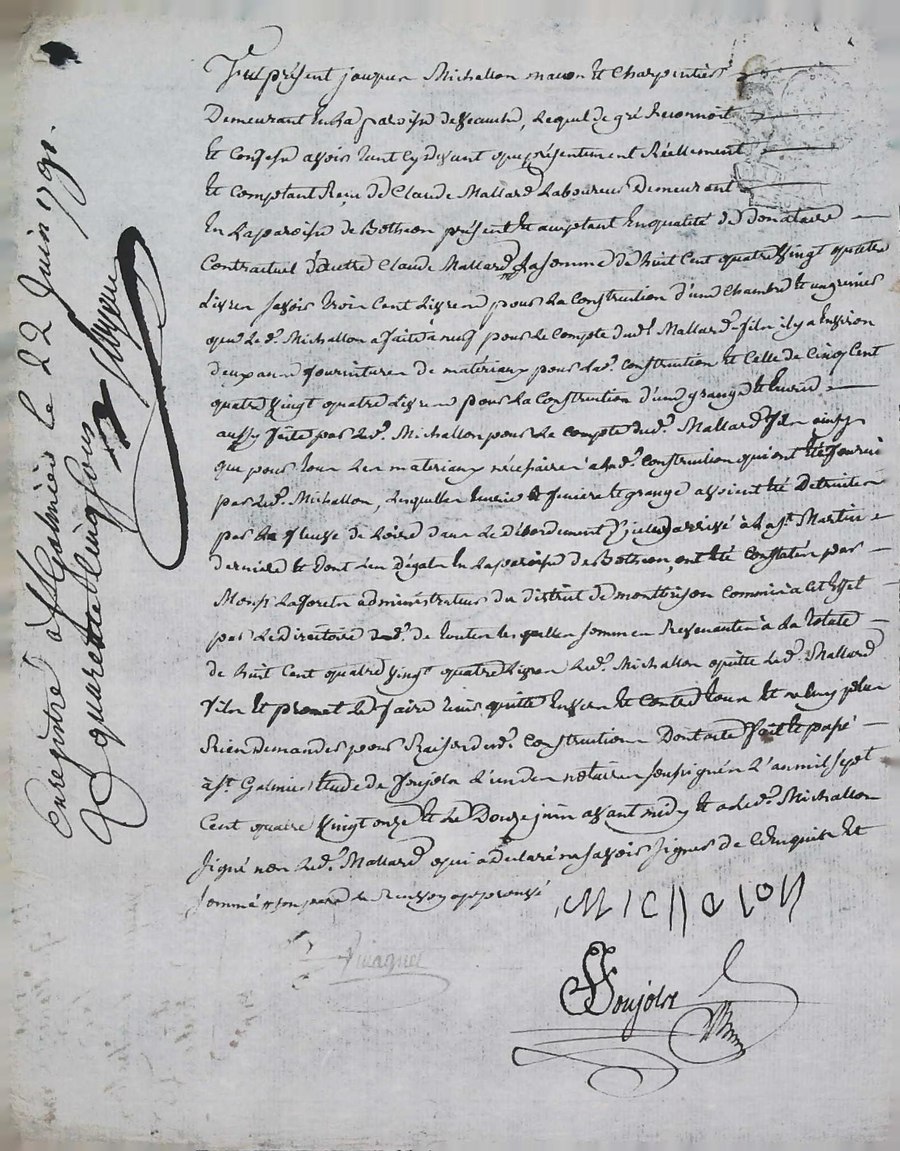 Fut présent jacques Michallon macon et Charpentier
Demeurant en La paroisse de Veauche, Lequel de gré Reconnoit
et Confesse avoir tant cy devant que présentement Réellement
et Comptant Reçu de Claude Mallard Laboureur Demeurant
En La paroisse de Botheon présent et acceptant En qualité de donataire
Contractuel d'autre Claude Mallard, La somme de huit Cent quatre vingt quatre
Livres savoir trois Cent Livres pour La Construction d'une Chambre et un grenier
que Led. Michallon a fait a neuf pour Le Compte dud. Mallard fils il y a Environ
deux ans fourniture de matériaux pour lad. Construction et Celle de Cinq Cent
quatre vingt quatre Livres pour La Construction d'une grange et Ecurie
aussy faite par Led. Michallon pour Le Compte dud. Mallard fils ainsy
que pour tous Les matériaux nécessaires a Lad. Construction qui ont été fourni
par Led. Michallon, Lesquelles Ecurie et grange avoient été Detruites
par Le fleuve de Loire dans Le débordement arrivé à La St. Martin
derniere et dont Les Dégats En La paroisse de Botheon ont été Constatés par
Monsr. Laforets administrateur du district de montbrison Commis à Cet Effet
par Le directoire de toutes Lesquelles sommes Revenantes à La totale
de huit Cent quatre vingt quatre Livres Led. Michallon quitte Led. Mallard
fils et promet Le faire tenir quitte Envers et Contre tous et ne luy plus
Rien demander pour Raison desd. Constructions Dont acte fait et passé
à St. Galmier étude de Joujols L'un des notaires soussignés L'an mil sept
Cent quatre vingt onze et Le Douze juin avant midy et a Led. Michallon
signé non Led. Mallard qui a declaré ne savoir signer de Ce Enquis et
sommé
Michalon
Joujols
Enregistré à St Galmier le 22 Juin 1791.
quarante cinq sous